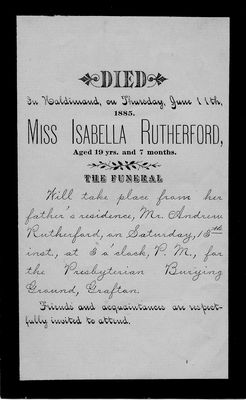 DIED
In Haldimand, on Thursday, June 11th,
1885.
MISS ISABELLA RUTHERFORD,
Aged 19 yrs. and 7 months.
THE FUNERAL
Will take place from her
father's residence, Mr. Andrew
Rutherford, on Saturday, 13th
inst., at 3 o'clock, P. M., for
the Presbyterian Burying
Ground, Grafton.
Friends and acquaintances are respect-
fully invited to attend.